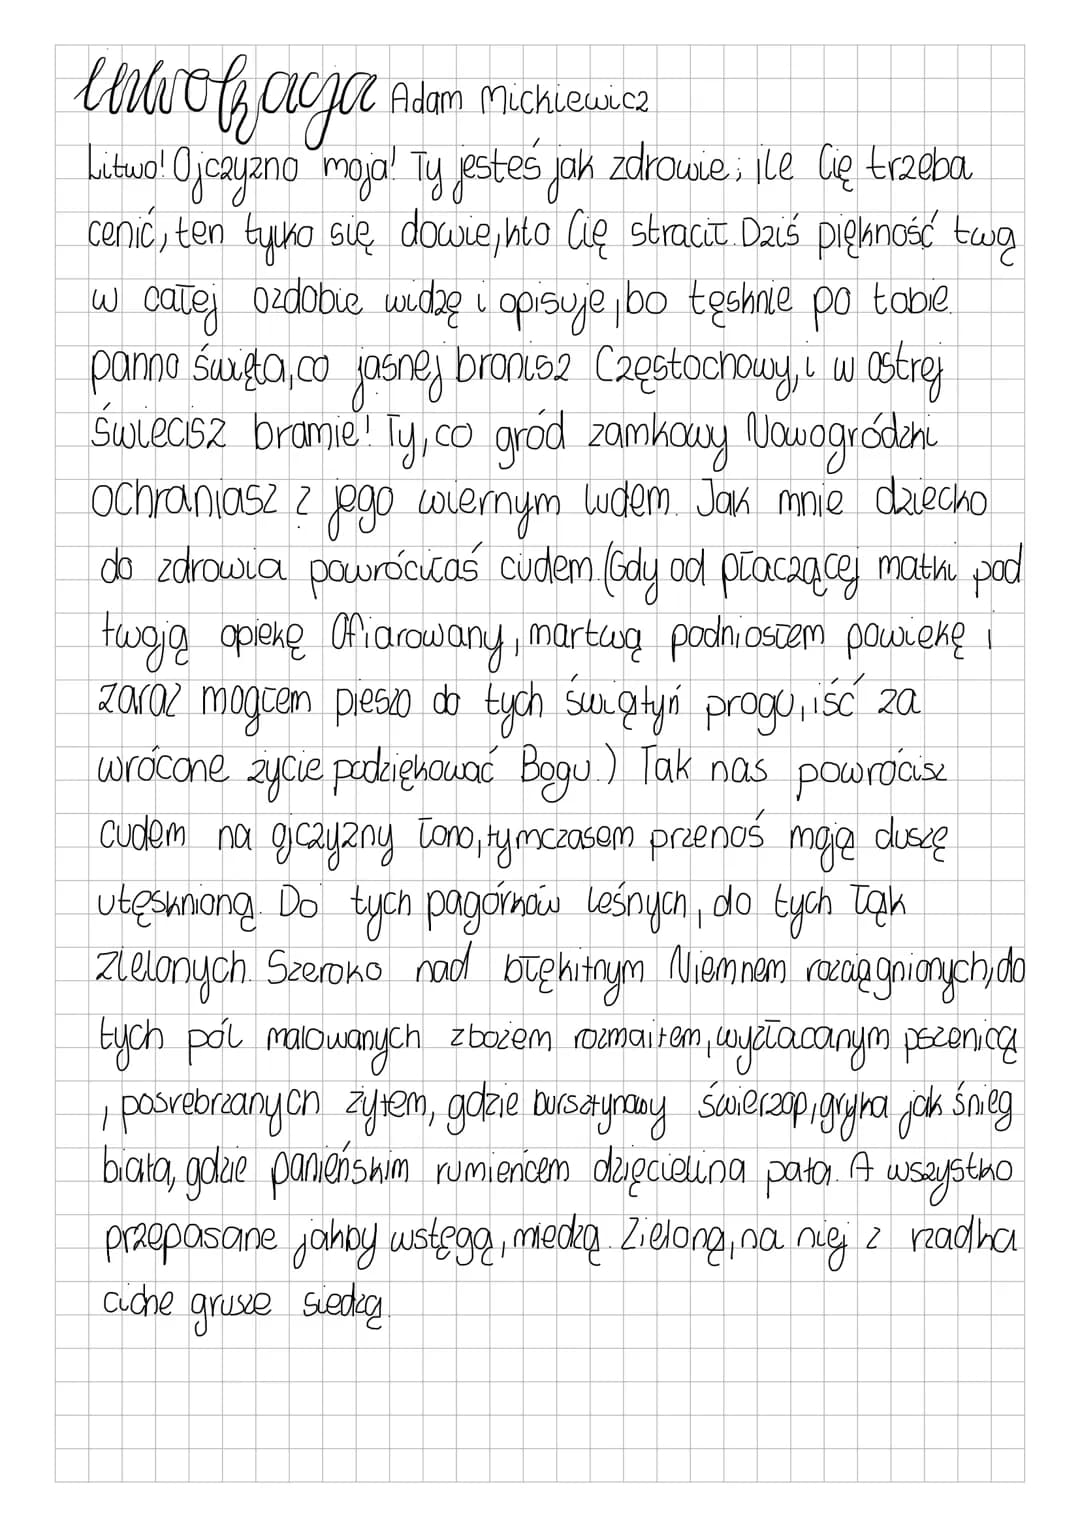 Inwokacja Adam Mickiewicz
Litwo! Ojczyzno moja! Ty jesteś jak zdrowie; ile Cię trzeba
cenić, ten tylko się dowie, kto Cię stracił. Dziś piękność twą
w całej ozdobie widzę i opisuje, bo tęsknie po tobie.
panno święta, co jasnej bronisz Częstochowy, i w ostrej
świecisz bramie! Ty, co gród zamkowy Nowogródzki
ochraniasz z jego wiernym ludem. Jak mnie dziecko
do zdrowia powróciłaś cudem. (Gdy od płaczącej matki pod
twoją opiekę Ofiarowany, martwą podniosłem powiekę i
zaraz mogłem pieszo do tych świątyń progu, iść za
wrócone życie podziękować Bogu.) Tak nas powrócisz
cudem na ojczyzny łono, tymczasem przenoś moją duszę
utęsknioną. Do tych pagórków leśnych, do tych łąk
zielonych. Szeroko nad błękitnym Niemnem rozciągnionych, do
tych pól malowanych zbożem rozmaitem, wyzłacanym pszenicą
, posrebrzanych żytem, gdzie bursztynowy świerzop, gryka jak śnieg
biała, gdzie panieńskim rumieńcem dzięcielina pała. A wszystko
przepasane jakby wstęgą, miedzą. Zieloną, na niej z rzadka
ciche grusze siedzą.